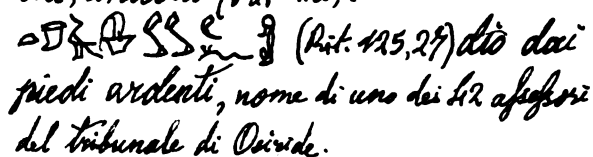 (Rit. 125, 27) dio dai
piedi ardenti, nome di uno dei 42 assessori
del tribunale di Osiride.